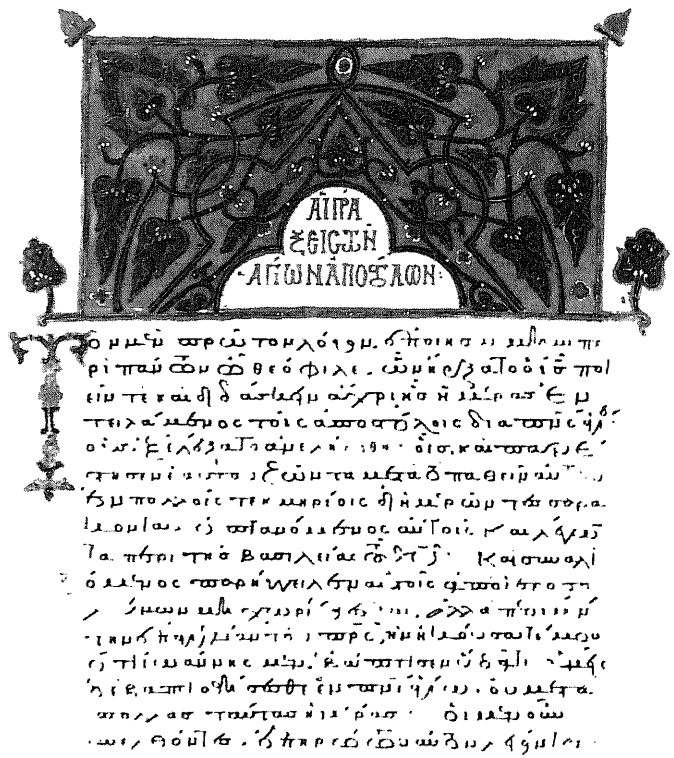 ΑΙ ΠΡΑ
ΞΕΙΣ ΤῶΝ
ΑΓΙΩΝ ἈΠΟΣΤΌΛΩΝ
Τὸν μὲν πρῶτον λόγον ἐποιησάμην πε
ρὶ πάντων ὦ θεόφιλε. ὧν ἤρξατο ὁ ισ ποι
εῖν τε καὶ διδάσκειν ἄχρι ἧς ἡμέρας ἐν
τειλάμενος τοῖς ἀποστόλοις διὰ πνς ἁγίου
οὓς ἐξελέξατο ἀνελήφθη· οἷς καὶ παρέ
στησεν ἑαυτὸν ζῶντα μετὰ τὸ παθεῖν αὐτὸν
ἐν πολλοῖς τεκμηρίοις δι ἡμερῶν τεσσαρα
κοντα ὀπτανόμενος αὐτοῖς καὶ λέγων
τὰ περὶ τῆς βασιλείας τοῦ θυ· Καὶ συναλι
ζόμενος παρήγγειλεν αὐτοῖς ἀπὸ ἱεροσο
λύμων μὴ χωρίζεσθαι. ἀλλὰ περιμέ
νειν τὴν ἐπαγγελίαν τοῦ πρς, ἣν ἠκούσατέ μου
ὅτι ἰωάννης μὲν ἐβάπτισεν ὕδατι ὑμεῖς
δὲ βαπτισθήσεσθε ἐν πνι ἁγίω. οὐ μετὰ
πολλὰς ταύτας ἡμέρας· Οἱ μὲν οὖν
συνελθόντες. ἐπηρώτων αὐτὸν λέγοντες